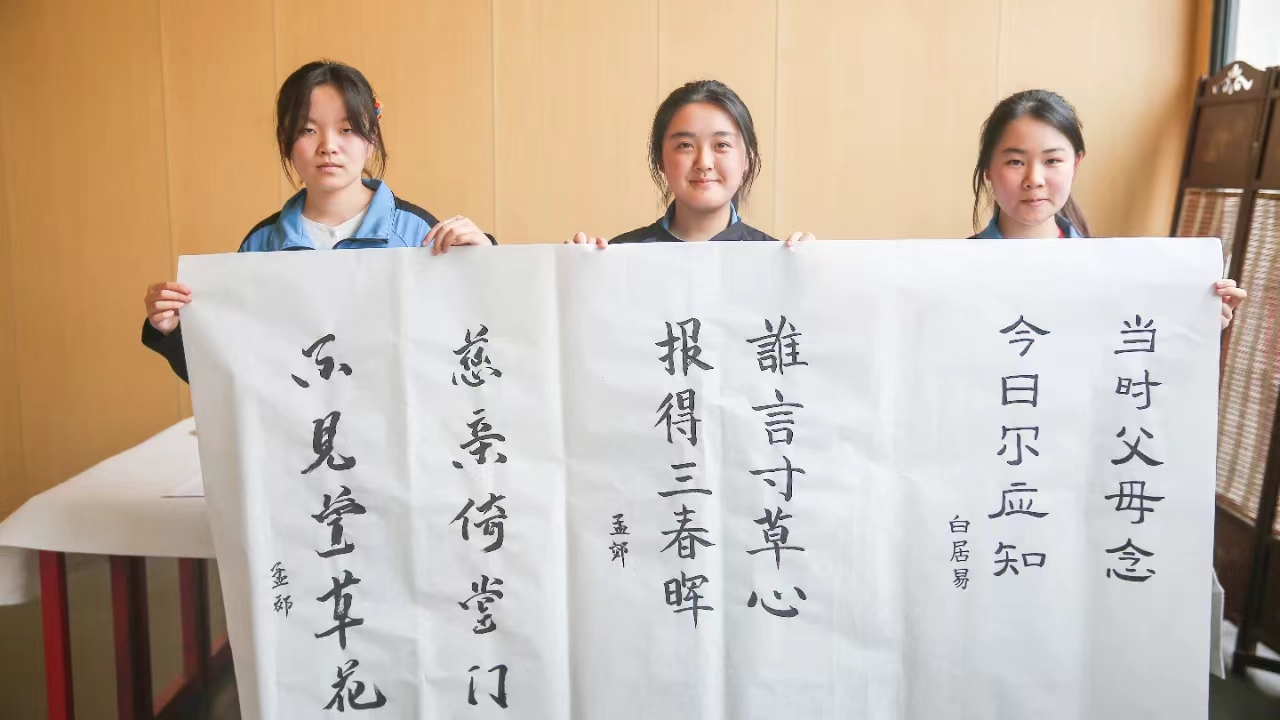 当时父母念
今日尔应知
白居易
誰言寸草心
报得三春晖
孟郊
慈亲倚堂门
不見萱草花
孟郊